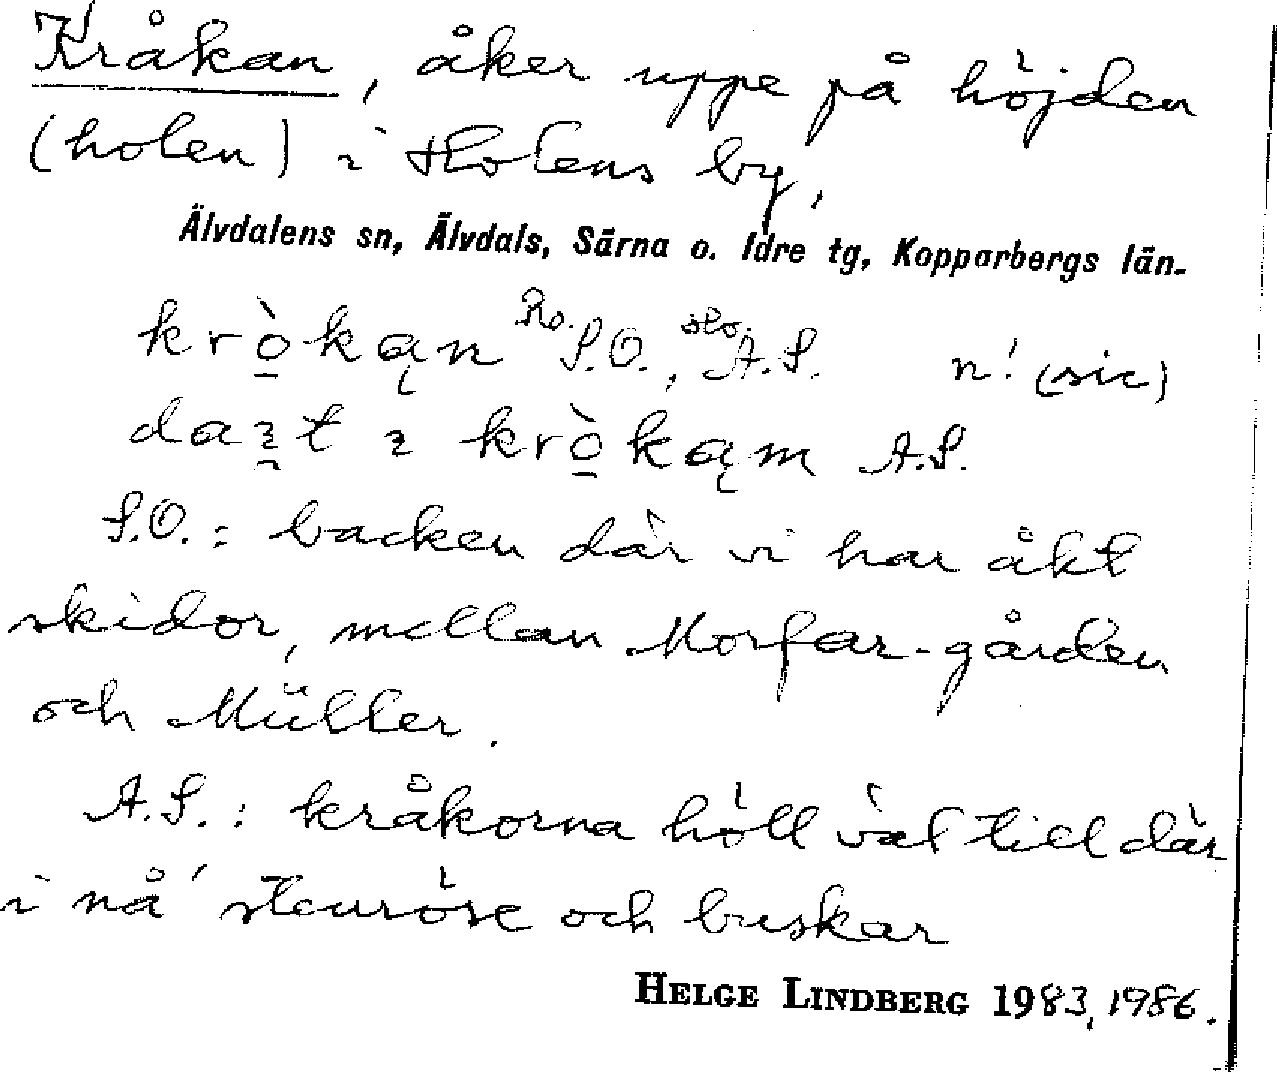 Kråkan, åker uppe på höjden
(holen) i Holens by,
Älvdalens sn, Älvdals, Särna o. Idre tg, Kopparbergs län.
krò̱ką̀n Ro. S.O., Ho. A.S. n! (sic)
daɪ̯t ɪ krò̱kąm A.S.
S.O.: backen där vi har åkt
skidor, mellan Morfar-gården
och Müller.
A.S.: kråkorna höll väl till där
i nå' stenröse och buskar
HELGE LINDBERG 1983, 1986.